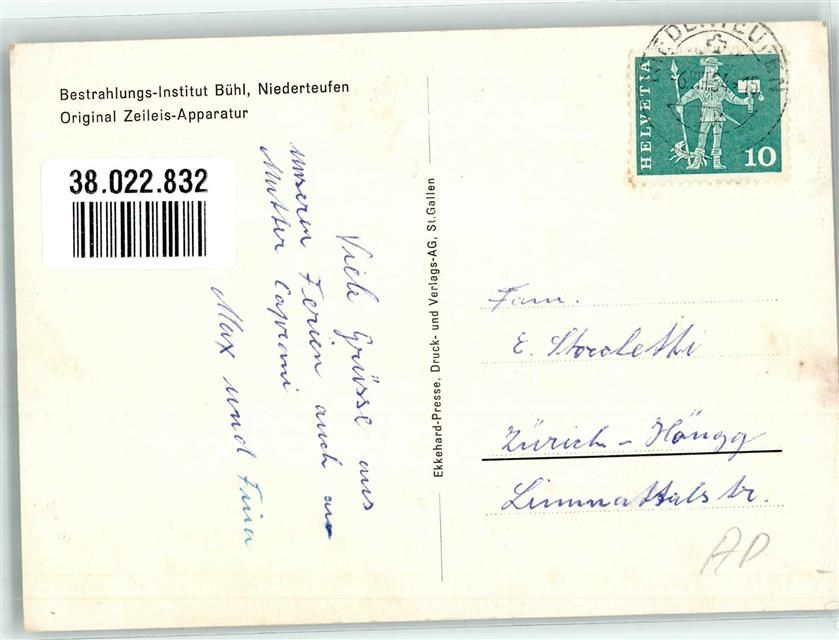 Bestrahlungs-Institut Bühl, Niederteufen
Original Zeileis-Apparatur
38.022.832
Viele Grüsse aus
unsern Ferien auch an
Mutter Caproni
Max und Fina
Ekkehard-Presse, Druck- und Verlags-AG, St. Gallen
NIEDERTEUFEN
HELVETIA
10
Fam.
E. Storchetti
Zürich - Höngg
Limmattalstr.
AP